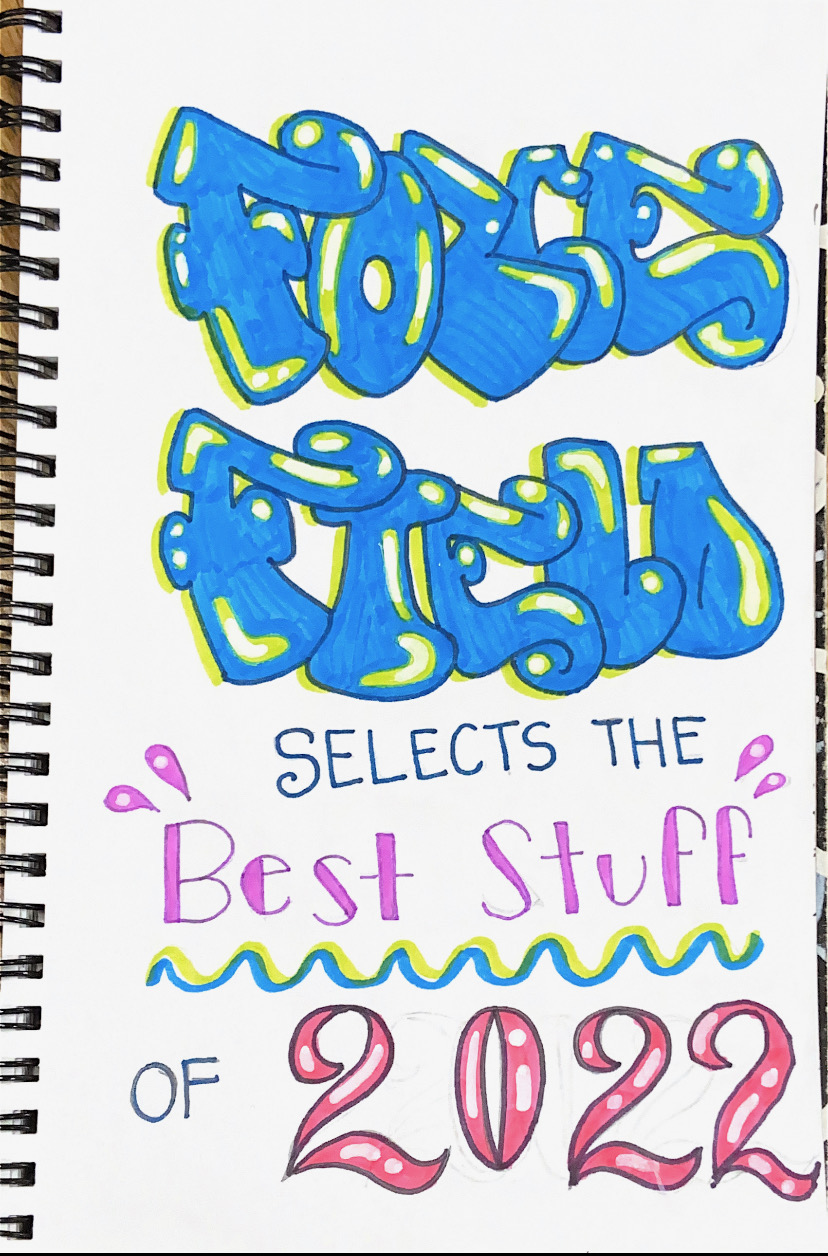 FORCE
FIELD
SELECTS THE
Best Stuff
OF 2022